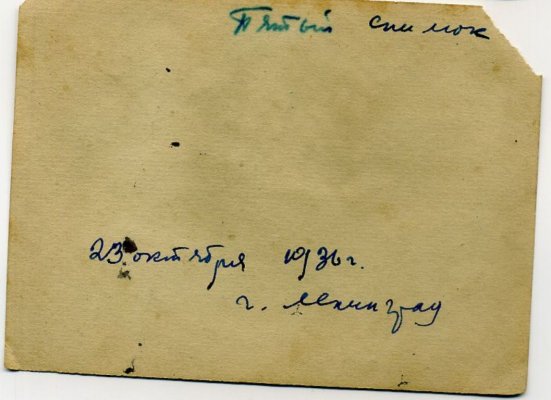 Пятый снимок
23 октября 1936 г.
г. Ленинград